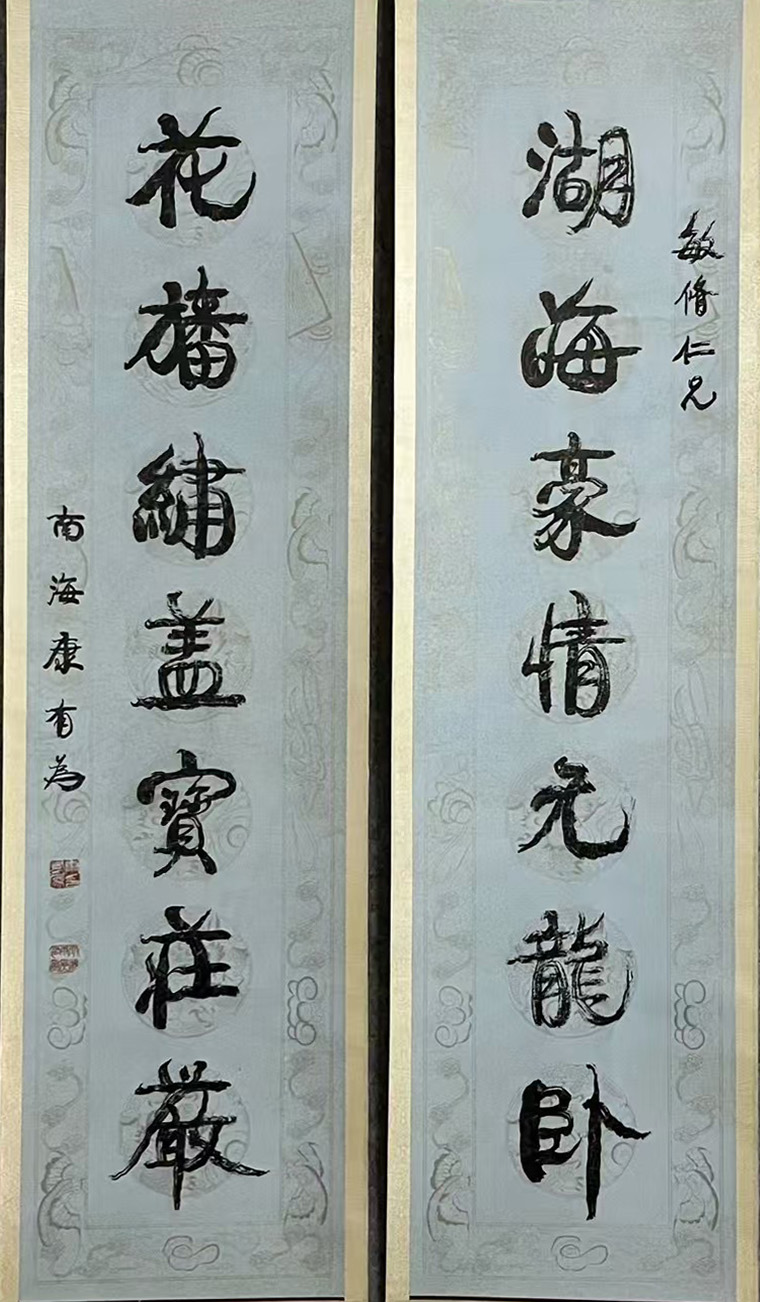 敏脩仁兄
湖海豪情元龍卧
花旛繡盖寶莊嚴
南海康有為